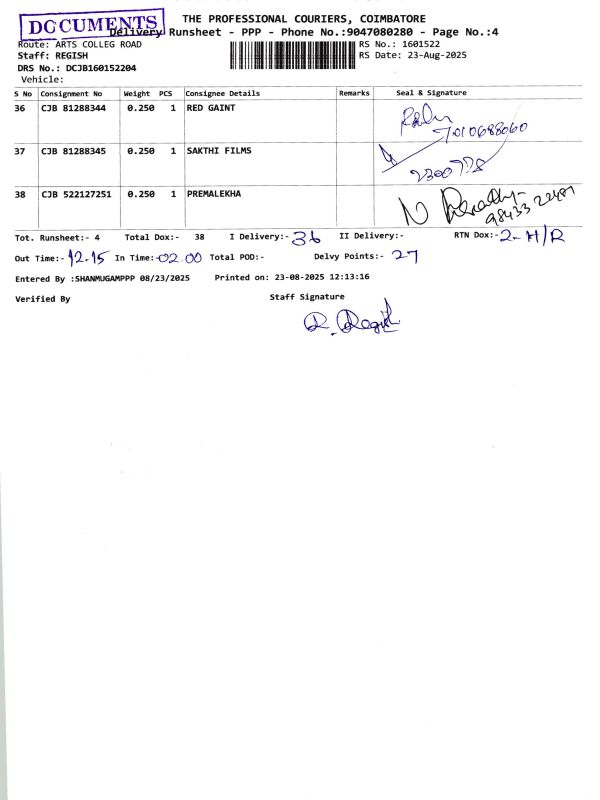 DOCUMENTS
THE PROFESSIONAL COURIERS, COIMBATORE
Delivery Runsheet - PPP - Phone No.:9047080280 - Page No.:4
Route: ARTS COLLEG ROAD RS No.: 1601522
Staff: REGISH RS Date: 23-Aug-2025
DRS No.: DCJB160152204
Vehicle:
S No Consignment No Weight PCS Consignee Details Remarks Seal & Signature
36 CJB 81288344 0.250 1 RED GAINT
7010688060
37 CJB 81288345 0.250 1 SAKTHI FILMS
38 CJB 522127251 0.250 1 PREMALEKHA
Tot. Runsheet:- 4 Total Dox:- 38 I Delivery:- 36 II Delivery:- RTN Dox:- 2-H/R
Out Time:- 12.15 In Time:- 02.00 Total POD:- Delvy Points:- 27
Entered By :SHANMUGAMPPP 08/23/2025 Printed on: 23-08-2025 12:13:16
Verified By Staff Signature
R. Regish